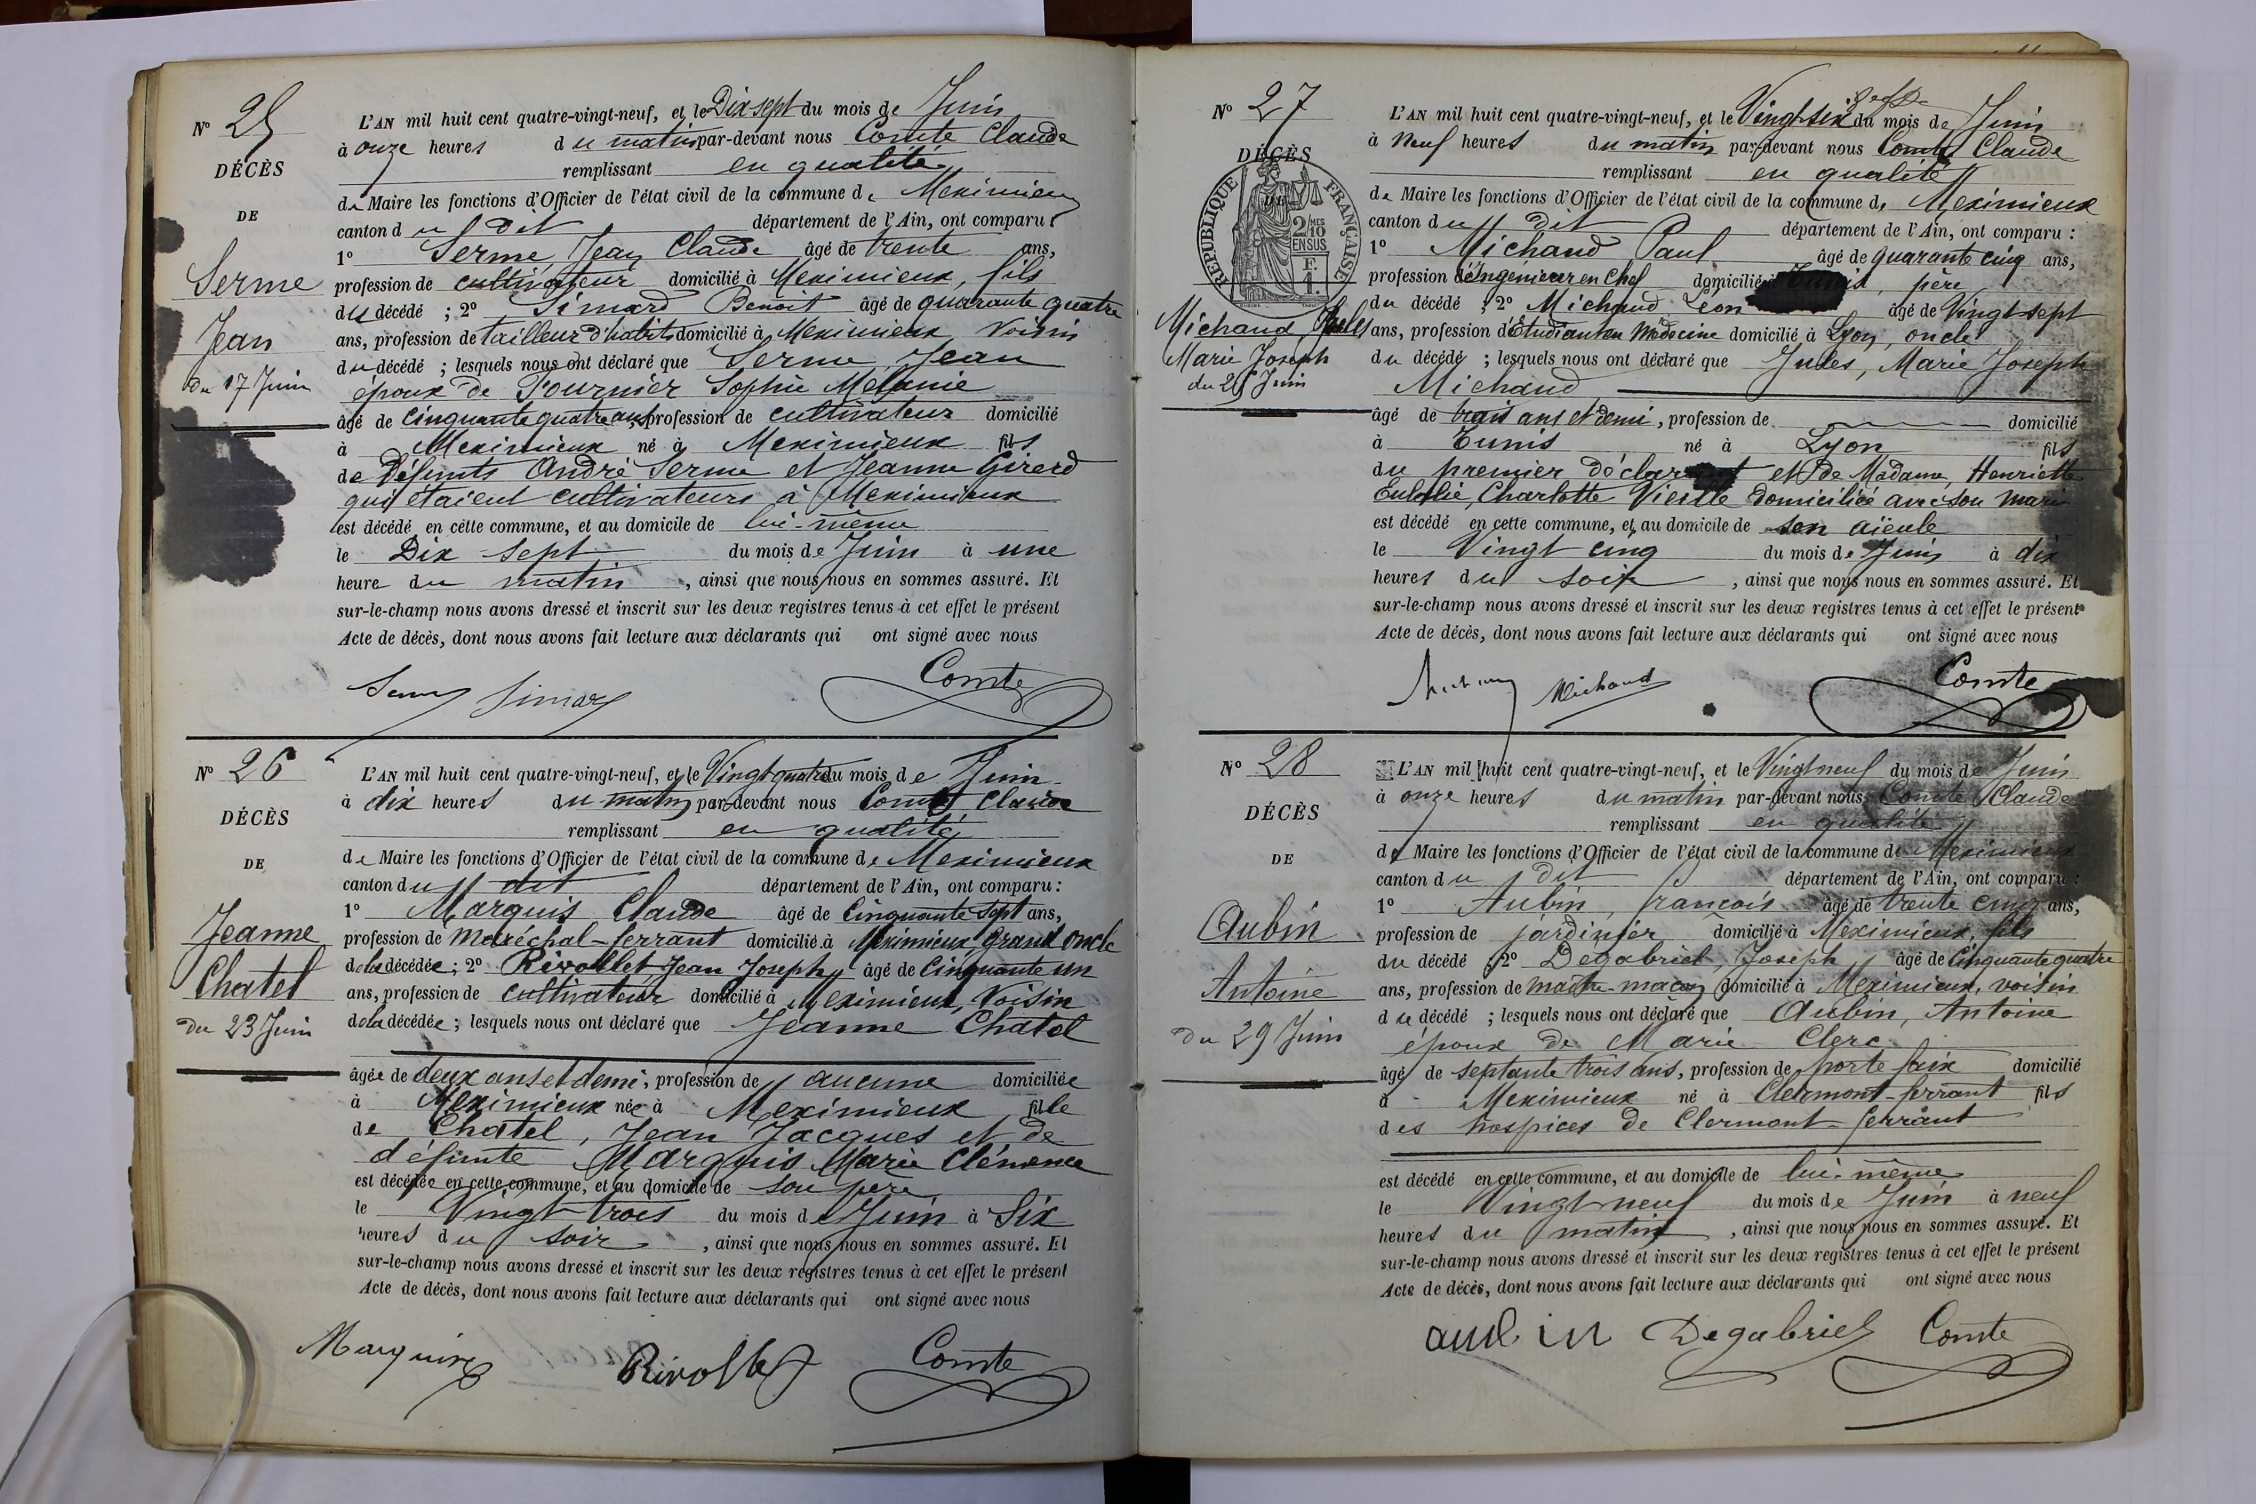 N° 25
DÉCÈS
DE
Serme
Jean
du 17 Juin
L'AN mil huit cent quatre-vingt-neuf, et le Dix sept du mois de Juin
à onze heures du matin par-devant nous Comte Claude
remplissant en qualité
de Maire les fonctions d'Officier de l'état civil de la commune de Meximieux
canton du dit département de l'Ain, ont comparu :
1° Serme Jean Claude âgé de trente ans,
profession de cultivateur domicilié à Meximieux, fils
du décédé ; 2° Simard Benoit âgé de quarante quatre
ans, profession de tailleur d'habits domicilié à Meximieux voisin
du décédé ; lesquels nous ont déclaré que Serme Jean
époux de Fournier Sophie Mélanie
âgé de cinquante quatre ans, profession de cultivateur domicilié
à Meximieux né à Meximieux fils
de Défunts André Serme et Jeanne Girerd
qui étaient cultivateurs à Meximieux
est décédé en cette commune, et au domicile de lui-même
le Dix sept du mois de Juin à une
heure du matin, ainsi que nous nous en sommes assuré. Et
sur-le-champ nous avons dressé et inscrit sur les deux registres tenus à cet effet le présent
Acte de décès, dont nous avons fait lecture aux déclarants qui ont signé avec nous
Simard Comte
N° 26
DÉCÈS
DE
Jeanne
Chatel
du 23 Juin
L'AN mil huit cent quatre-vingt-neuf, et le Vingt quatre du mois de Juin
à dix heures du matin par-devant nous Comte Claude
remplissant en qualité
de Maire les fonctions d'Officier de l'état civil de la commune de Meximieux
canton du dit département de l'Ain, ont comparu :
1° Marquis Claude âgé de Cinquante sept ans,
profession de Maréchal-ferrant domicilié à Meximieux, grand oncle
de la décédée ; 2° Rivollet Jean Joseph, âgé de Cinquante un
ans, profession de cultivateur domicilié à Meximieux, Voisin
de la décédée ; lesquels nous ont déclaré que Jeanne Chatel
âgée de deux ans et demi, profession de aucune domiciliée
à Meximieux née à Meximieux, fille
de Chatel, Jean Jacques et de
défunte Marquis Marie Clémence
est décédée en cette commune, et au domicile de son père
le Vingt trois du mois de Juin à Six
heures du soir, ainsi que nous nous en sommes assuré. Et
sur-le-champ nous avons dressé et inscrit sur les deux registres tenus à cet effet le présent
Acte de décès, dont nous avons fait lecture aux déclarants qui ont signé avec nous
Marquis Rivollet Comte
N° 27
DÉCÈS
RÉPUBLIQUE FRANÇAISE
2 MES
10
EN SUS
F.
1.
Michaud Jules
Marie Joseph
du 25 Juin
L'AN mil huit cent quatre-vingt-neuf, et le Vingt six du mois de Juin
à Neuf heures du matin par-devant nous Comte Claude
remplissant en qualité
de Maire les fonctions d'Officier de l'état civil de la commune de Meximieux
canton du dit département de l'Ain, ont comparu :
1° Michaud Paul âgé de quarante cinq ans,
profession d'Ingenieur en Chef domicilié à Tunis, père
du décédé ; 2° Michaud Léon âgé de Vingt sept
ans, profession d'Etudiant en Médecine domicilié à Lyon, oncle
du décédé ; lesquels nous ont déclaré que Jules, Marie Joseph
Michaud
âgé de trois ans et demi, profession de domicilié
à Tunis né à Lyon fils
du premier déclarant et de Madame, Henriette
Eulalie, Charlotte Vieille domiciliée avec son mari
est décédé en cette commune, et au domicile de son aïeule
le Vingt cinq du mois de Juin à dix
heures du soir, ainsi que nous nous en sommes assuré. Et
sur-le-champ nous avons dressé et inscrit sur les deux registres tenus à cet effet le présent
Acte de décès, dont nous avons fait lecture aux déclarants qui ont signé avec nous
Michaud Comte
N° 28
DÉCÈS
DE
Aubin
Antoine
du 29 Juin
L'AN mil huit cent quatre-vingt-neuf, et le Vingt neuf du mois de Juin
à onze heures du matin par-devant nous Comte Claude
remplissant en qualité
de Maire les fonctions d'Officier de l'état civil de la commune de Meximieux
canton du dit département de l'Ain, ont comparu :
1° Aubin, françois âgé de trente cinq ans,
profession de jardinier domicilié à Meximieux, fils
du décédé ; 2° Degabriel, Joseph âgé de Cinquante quatre
ans, profession de maître-maçon domicilié à Meximieux, voisin
du décédé ; lesquels nous ont déclaré que Aubin, Antoine
époux de Marie Clerc
âgé de septante trois ans, profession de porte faix domicilié
à Meximieux né à Clermont-ferrant fils
des hospices de Clermont-ferrant
est décédé en cette commune, et au domicile de lui-même
le Vingt neuf du mois de Juin à neuf
heures du matin, ainsi que nous nous en sommes assuré. Et
sur-le-champ nous avons dressé et inscrit sur les deux registres tenus à cet effet le présent
Acte de décès, dont nous avons fait lecture aux déclarants qui ont signé avec nous
aubin Degabriel Comte